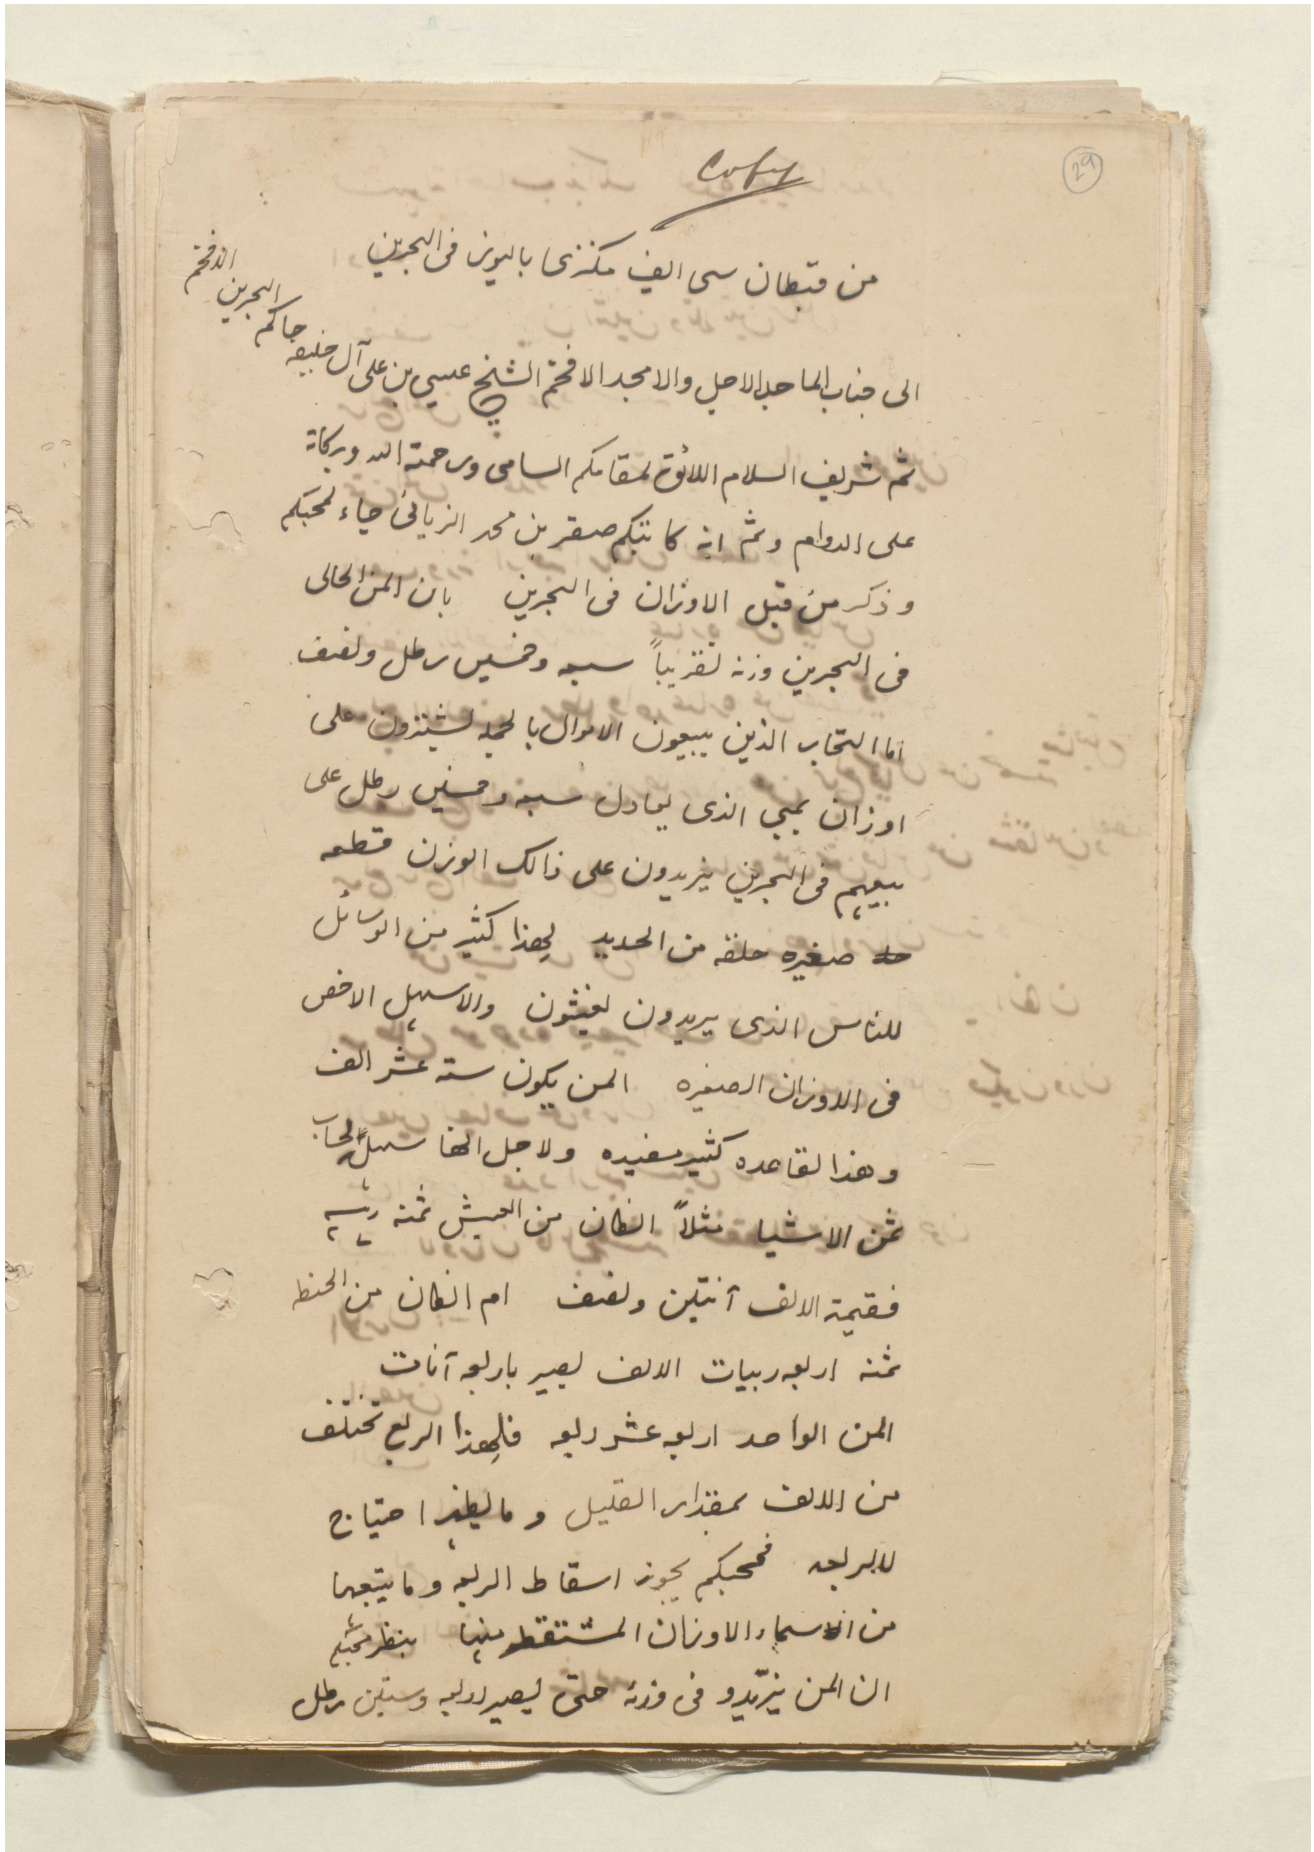 Copy
29
من قبطان سي الف مكنزى باليوز فى البحرين
الى جناب الماجد الاجل والامجد الافخم الشيخ عيسي بن على آل خليفه حاكم البحرين الافخم
ثم شريف السلام اللائق لمقامكم السامى ورحمة الله وبركاة
على الدوام وثم انه كاتبكم صقر بن محمد الزيانى جاء لمحبكم
وذكر من قبل الاوزان فى البحرين بان المن الحالى
فى البحرين وزنه تقريباً سبعه وخمسين رطل ونصف
اما التجار الذين يبيعون الاموال بالجمله يشترون على
اوزان بمبي الذى يعادل سبعه وخمسين رطل على
بيعهم فى البحرين يزيدون على ذالك الوزن قطعه
صغيره حلقه من الحديد لهذا كثير من الوسائل
للناس الذى يريدون يغشون والاسهل الاخص
فى الاوزان الصغيره المن يكون سته عشر الف
وهذا لقاعده كثير مفيده ولاجل انها سهلٌ لحساب
ثمن الاشيا مثلاً انكان من العيش ثمنه ربيه
فقيمة الالف آنتين ونصف ام انكان من الحنطه
ثمنه اربعه ربيات الالف يصير باربعه آنات
المن الواحد اربعه عشر ربعه فلهذا الربع تختلف
من الالف بمقدار القليل وما يظهر احتياج
للربعه فمحبكم يجوز اسقاط الربعه وما يتبعها
من اسماء الاوزان منها بنظر محبكم
ان المن يزيدو فى وزنه حتى يصير اربعه وستين رطل